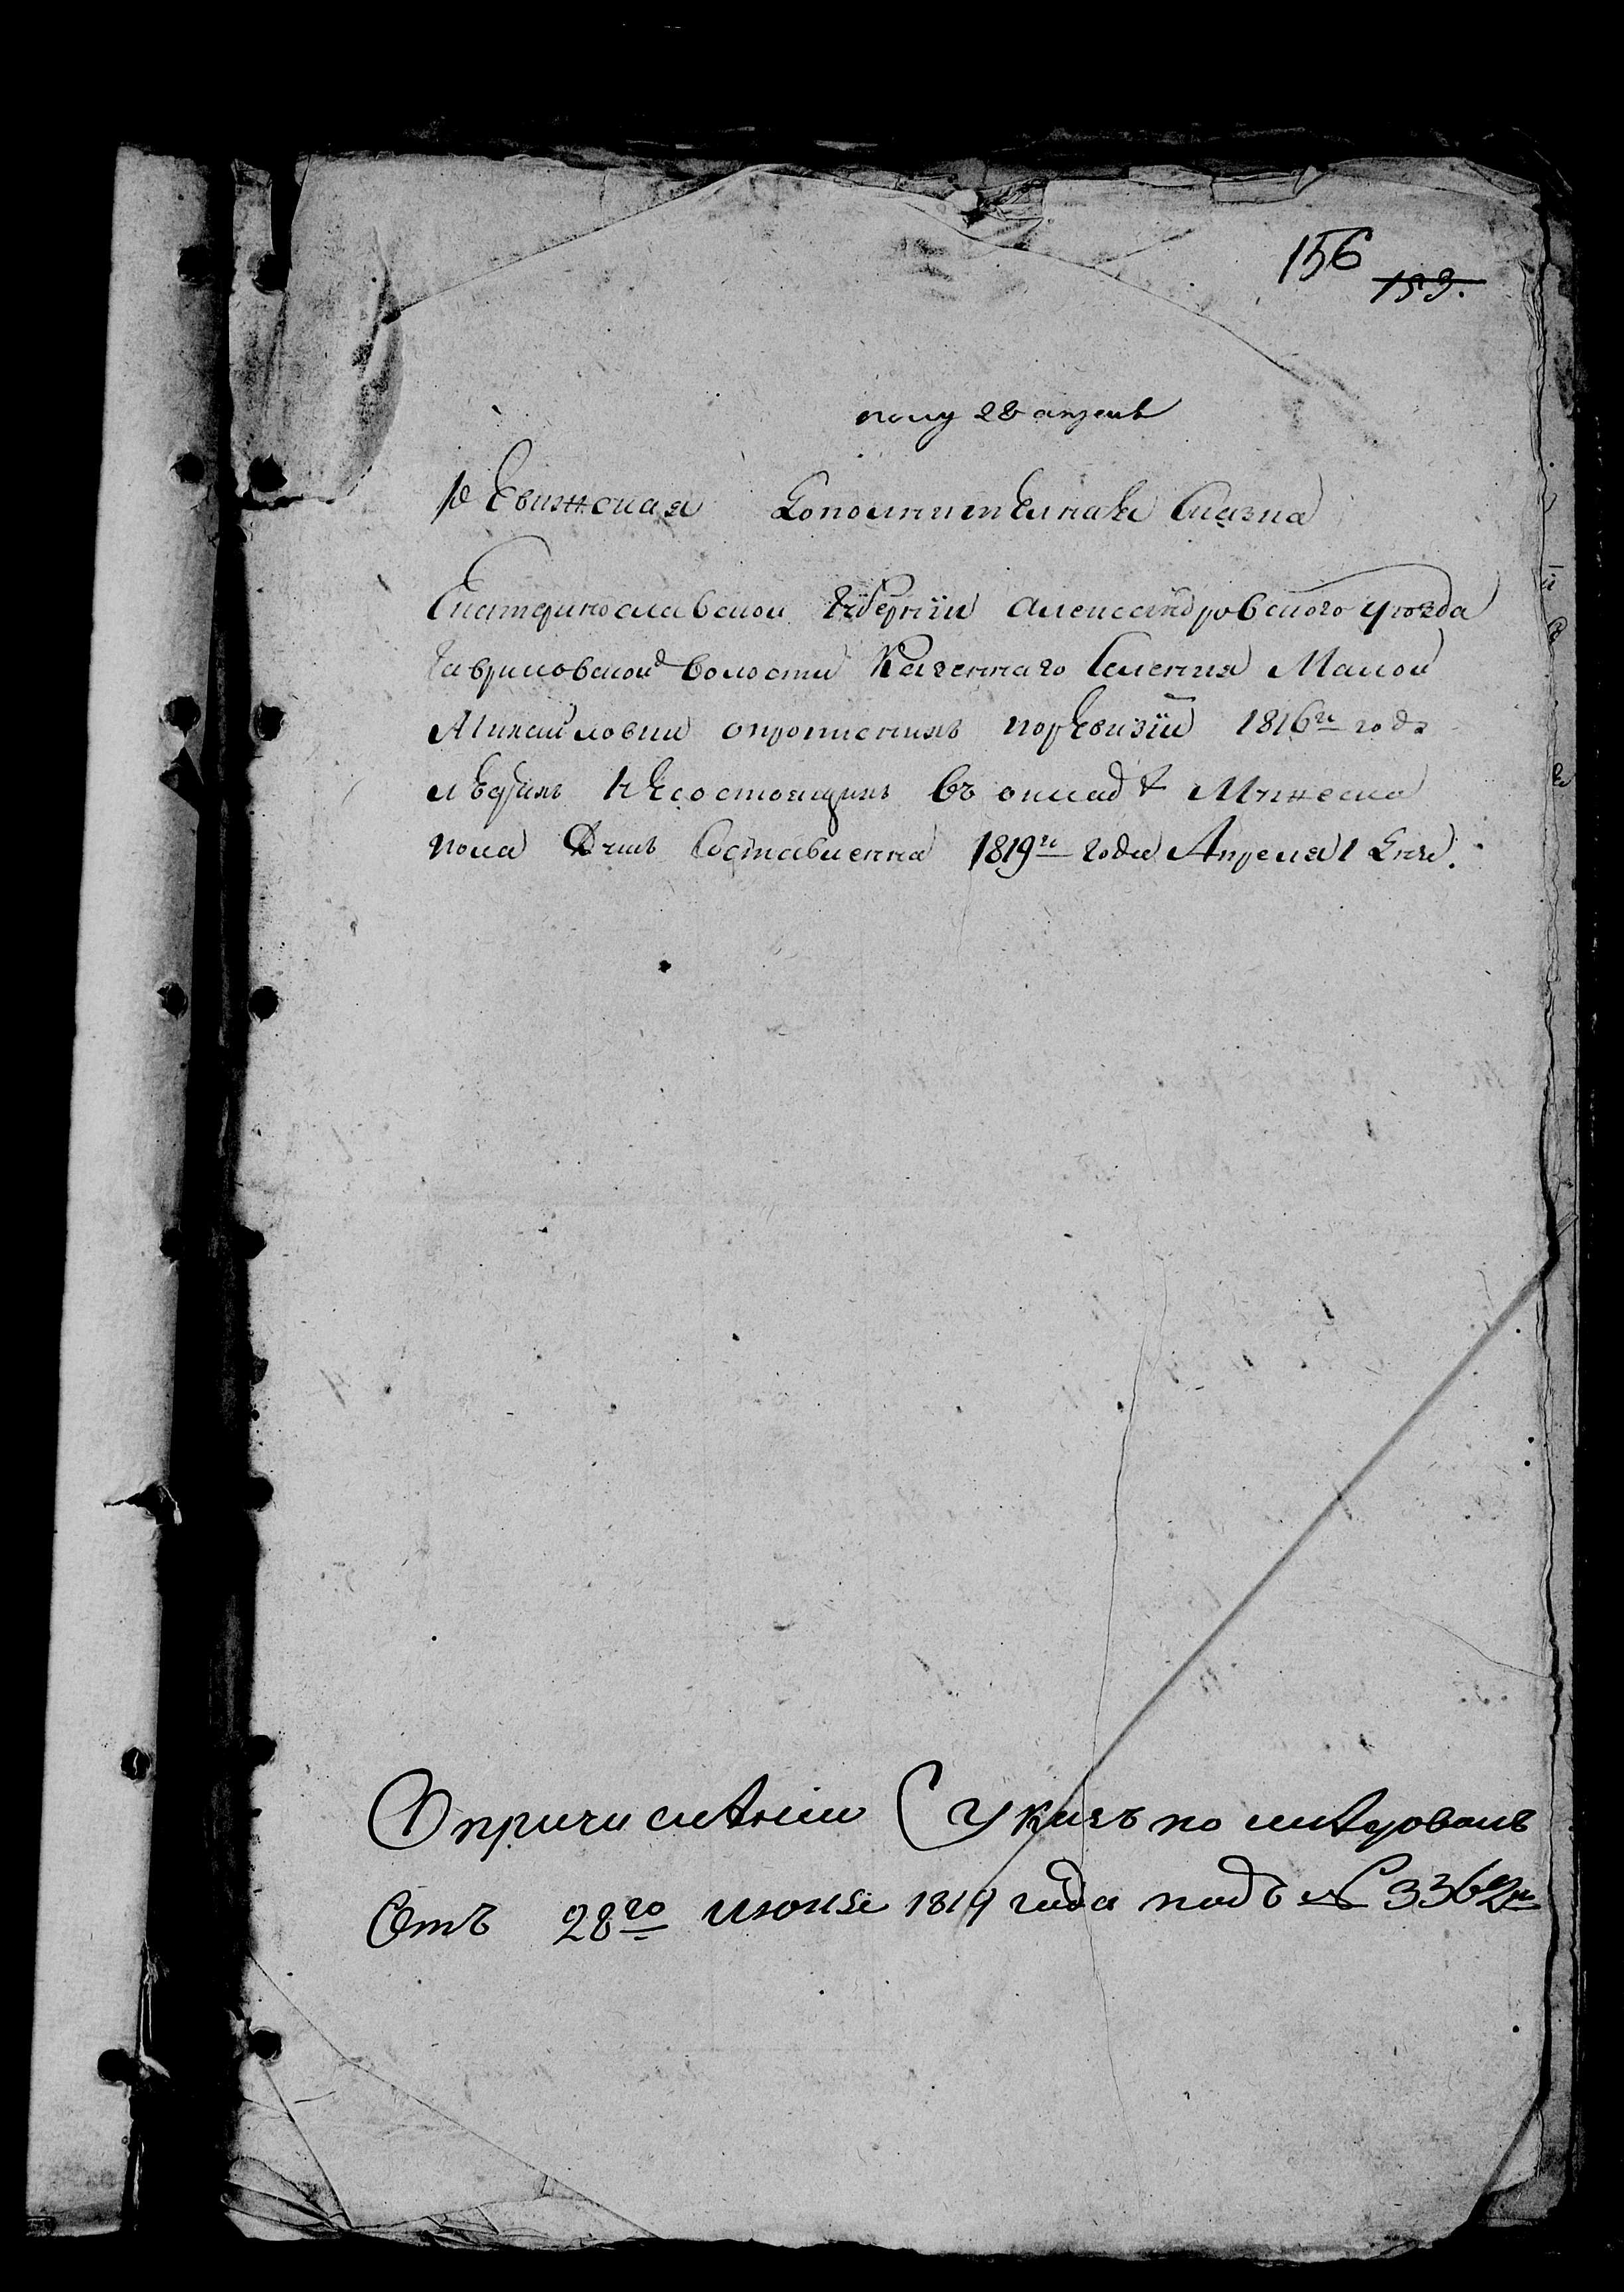 156
153.
полу 28 апреля
Ревижская Дополнителная Сказка
Екатеринославской Губернїи Александровского уезда
Гавриловской волости Казеннаго Селения Малой
Михайловки опрописных поревизїи 1816го года
и несостоящих въ окладе Мужеска
пола душъ Составленна 1819го года Апреля 1 дня.
О причислении Указъ последовалъ
Отъ 28го июня 1819 года подъ № 3362м